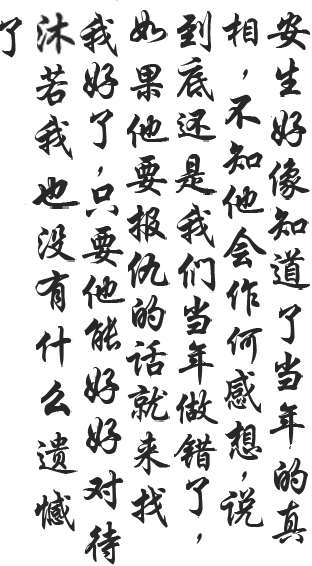 安生好像知道了当年的真
相，不知他会作何感想，说
到底还是我们当年做错了，
如果他要报仇的话就来找
我好了，只要他能好好对待
沐若我也没有什么遗憾
了